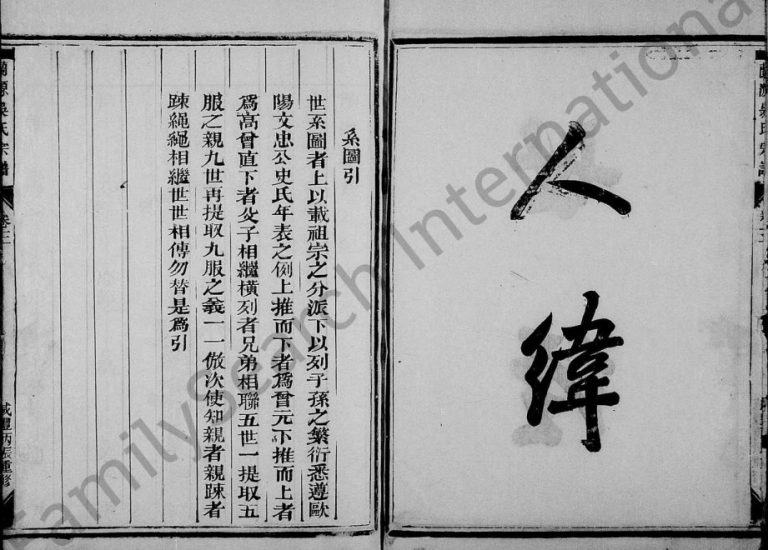 人緯
系圖引
世系圖者上以載祖宗之分派下以列子孫之繁衍悉遵歐
陽文忠公史氏年表之例上推而下者爲曾元下推而上者
爲高曾直下者父子相繼橫列者兄弟相聯五世一提取五
服之親九世再提取九服之義一一倣次使知親者親踈者
踈繩繩相繼世世相傳勿替是爲引
蘭源吳氏宗譜
卷三
咸豐丙辰重修
FamilySearch International